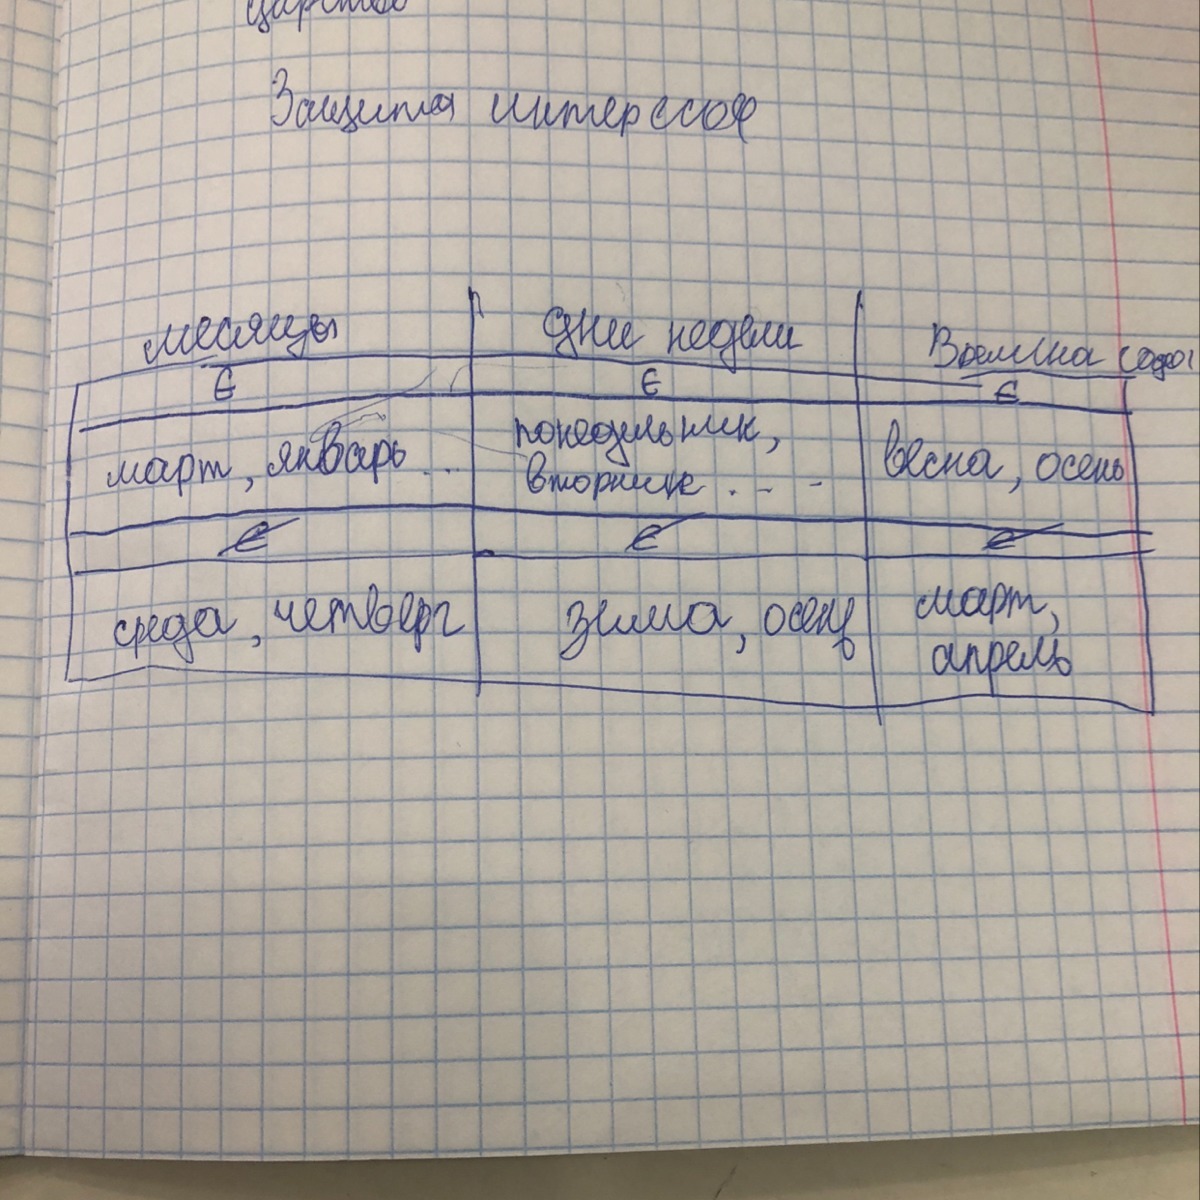 царство
Защита интерессоф
месяцы дни недели Времена года
∈ ∈ ∈
март, январь... понедельник, вторник... весна, осень
∉ ∉ ∉
среда, четверг зима, осень март, апрель